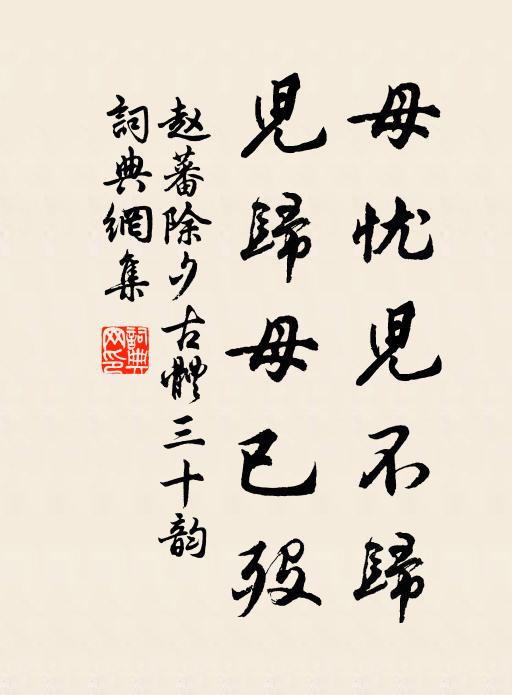 母忧児不歸
児歸母已殁
赵蕃除夕古體三十韵
詞典網集
詞典網印